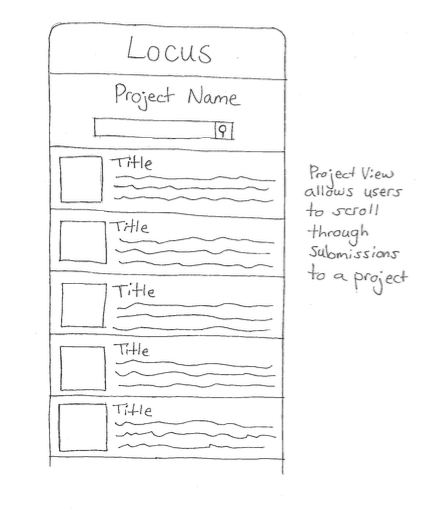 Locus
Project Name
Title
Title
Title
Title
Title
Project View
allows users
to scroll
through
submissions
to a project